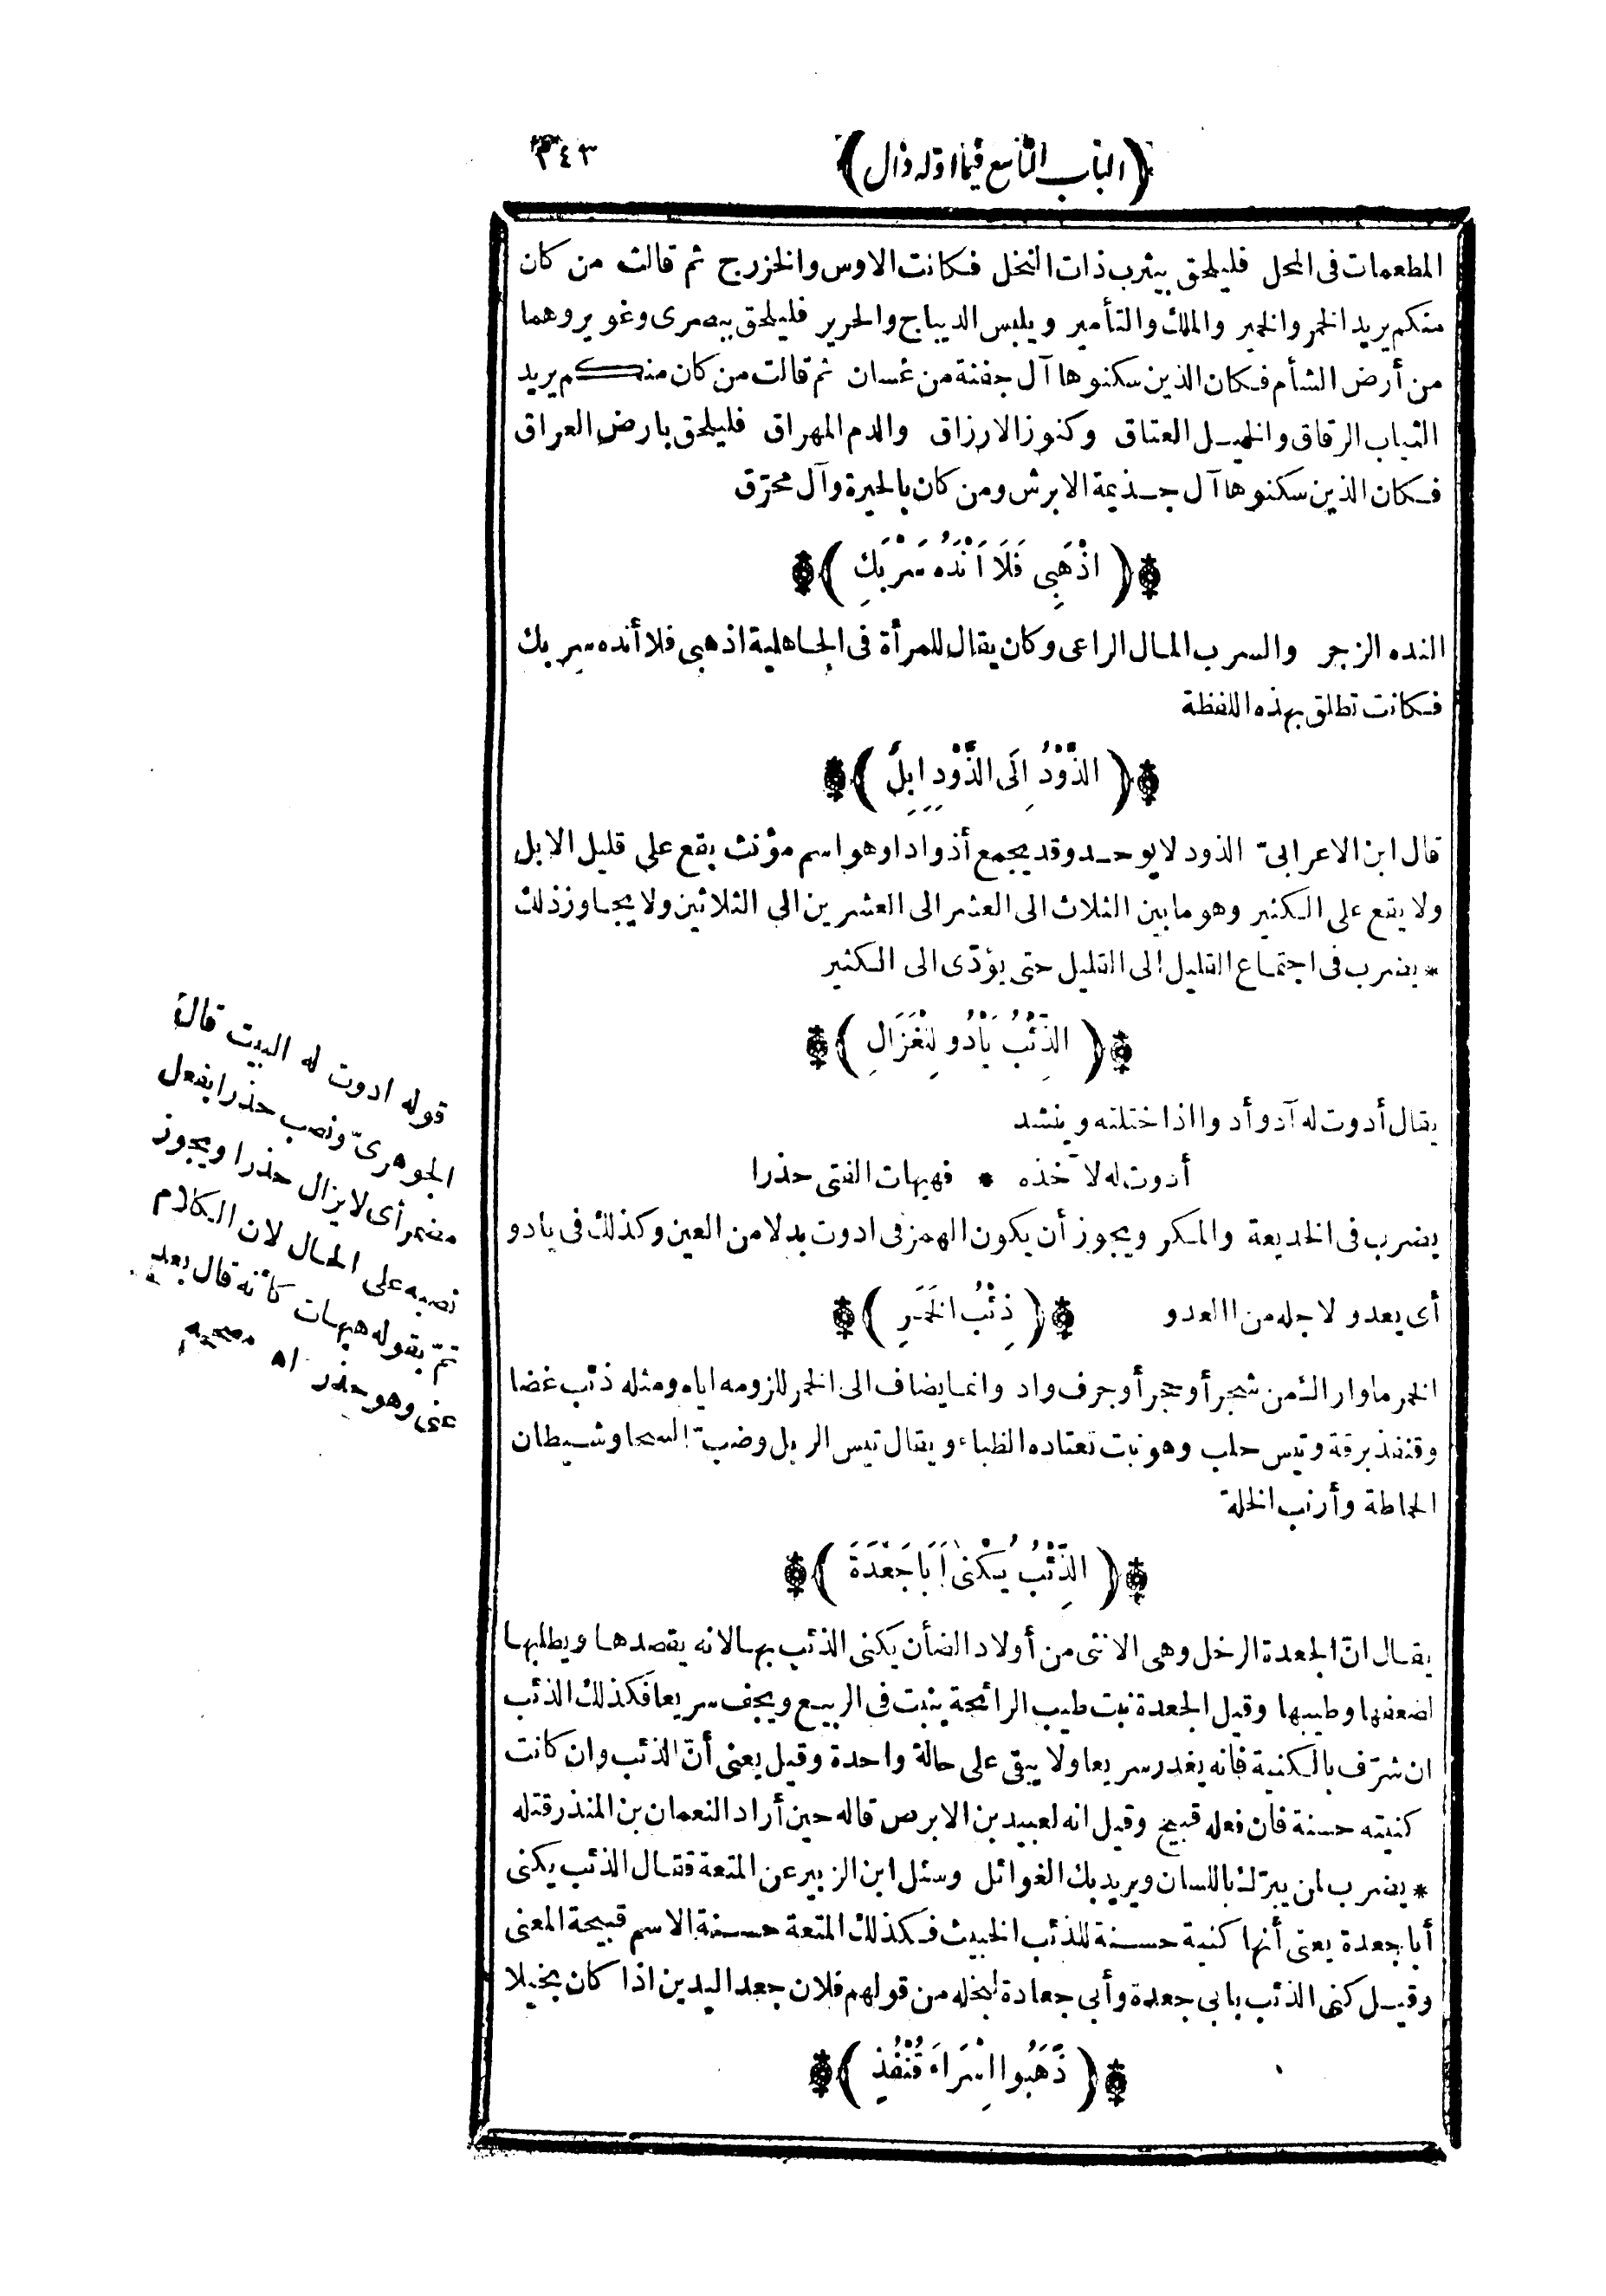 (الباب التاسع فيما اوله ذال) ٣٤٣
المطعمات فى المحل فليلحق بيثرب ذات النخل فكانت الاوس والخزرج ثم قالت من كان
منكم يريد الخمر والخمير والملك والتأمير ويلبس الديباج والحرير فليلحق ببصرى وغوير وهما
من أرض الشأم فكان الذين سكنوها آل جفنة من غسان ثم قالت من كان منكم يريد
الثياب الرقاق والخيل العتاق وكنوز الارزاق والدم المهراق فليلحق بارض العراق
فكان الذين سكنوها آل جذيمة الابرش ومن كان بالحيرة وآل محرّق
(اذْهَبِى فَلَا اَنْدَهُ سَرْبَكِ)
النده الزجر والسرب المال الراعى وكان يقال للمرأة فى الجاهلية اذهبى فلا أنده سربك
فكانت تطلق بهذه اللفظة
(الذَّوْدُ اِلَى الذَّوْدِ اِبِلٌ)
قال ابن الاعرابىّ الذود لا يوحد وقد يجمع أذوادا وهو اسم مؤنث يقع على قليل الابل
ولا يقع على الكثير وهو ما بين الثلاث الى العشر الى العشرين الى الثلاثين ولا يجاوز ذلك
* يضرب فى اجتماع القليل الى القليل حتى يؤدّى الى الكثير
(الذِّئْبُ يَأْدُو لِلْغَزَالِ)
يقال أدوت له آدو أدوا اذا ختلته وينشد
أدوت له لا آخذه * فهيهات الفتى حذرا
يضرب فى الخديعة والمكر ويجوز أن يكون الهمز فى ادوت بدلا من العين وكذلك فى يادو
أى يعدو لاجله من العدو (ذِئْبُ الخَمَرِ)
الخمر ما واراك من شجر أو حجر أو جرف واد وانما يضاف الى الخمر للزومه اياه ومثله ذئب غضا
وقنفذ برقة وتيس حلب وهو نبات تعتاده الظباء ويقال تيس الربل وضبّ السحا وشيطان
الحماطة وأرنب الخلة
(الذِّئْبُ يُكْنَى أَبَا جَعْدَةَ)
يقال انّ الجعدة الرخل وهى الانثى من أولاد الضأن يكنى الذئب بها لانه يقصدها ويطلبها
لضعفها وطيبها وقيل الجعدة نبت طيب الرائحة ينبت فى الربيع ويجف سريعا فكذلك الذئب
ان شرّف بالكنية فانه يغدر سريعا ولا يبقى على حالة واحدة وقيل يعنى أنّ الذئب وان كانت
كنيته حسنة فان فعله قبيح وقيل انه لعبيد بن الابرص قاله حين أراد النعمان بن المنذر قتله
* يضرب لمن يبرّك باللسان ويريد بك الغوائل وسئل ابن الزبير عن المتعة فقال الذئب يكنى
أبا جعدة يعنى أنها كنية حسنة للذئب الخبيث فكذلك المتعة حسنة الاسم قبيحة المعنى
وقيل كنى الذئب بابى جعدة وأبى جعادة لبخله من قولهم فلان جعد اليدين اذا كان بخيلا
(ذَهَبُوا اِسْرَاءَ قُنْفُذٍ)
قوله ادوت له البيت قال
الجوهرىّ ونصب حذرا بفعل
مضمر أى لا يزال حذرا ويجوز
نصبه على الحال لان الكلام
تمّ بقوله هيهات كأنه قال بعد
عنى وهو حذر اه مصححه